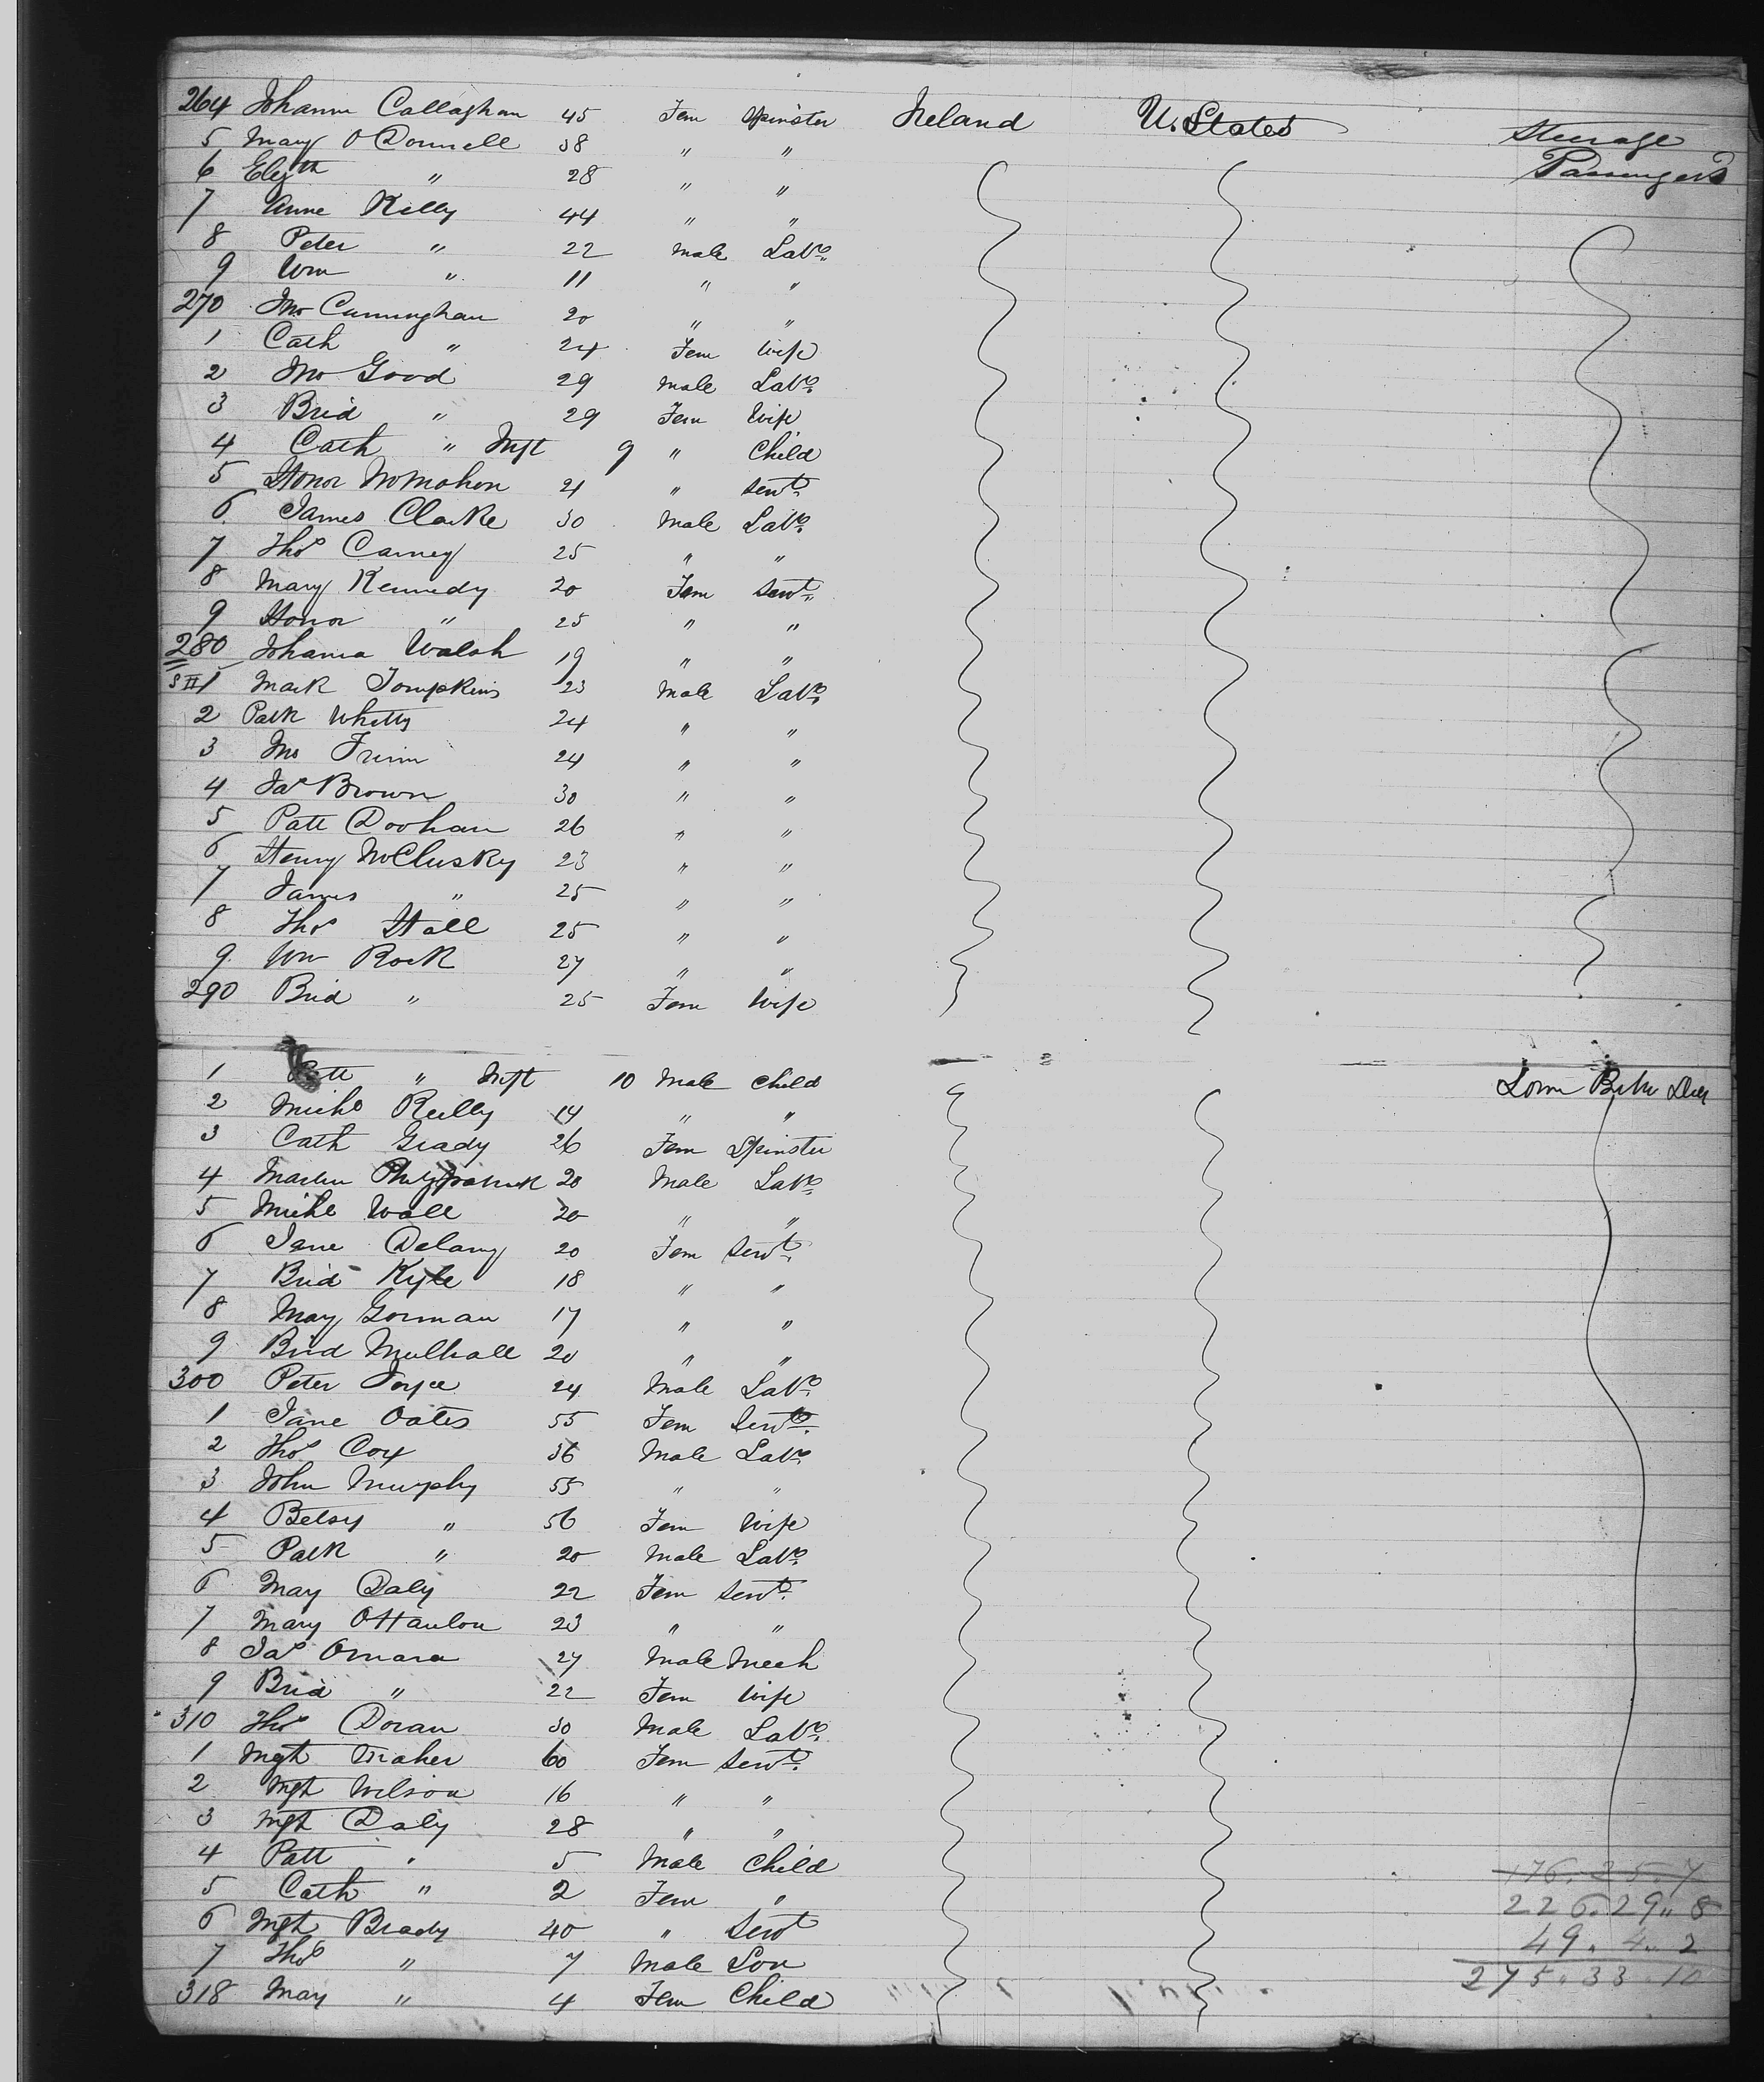 264 Johanna Callaghan 45 Fem Spinster Ireland U. States Steerage
5 Mary O Donnell 38 " " Passengers
6 Elizth " 28 " "
7 Anne Kelly 44 " "
8 Peter " 22 Male Labr
9 Wm " 11 " "
270 Jno Cunningham 20 " "
1 Cath " 24 Fem Wife
2 Jno Good 29 Male Labr
3 Brid " 29 Fem Wife
4 Cath " Inft 9 " Child
5 Honor McMahon 21 " Servt
6 James Clarke 30 Male Labr
7 Thos Carney 25 " "
8 Mary Kennedy 20 Fem Servt
9 Honor " 25 " "
280 Johanna Walsh 19 " "
1 Mark Tompkins 23 Male Labr
2 Patk Whitty 24 " "
3 Jno 24 " "
4 Jas Brown 30 " "
5 Patt Doohan 26 " "
6 Henry McClusky 23 " "
7 James " 25 " "
8 Thos Hall 25 " "
9 Wm Rock 27 " "
290 Brid " 25 Fem Wife
1 Patt " Inft 10 Male Child Lower Betw Deck
2 Michl Reilly 14 " "
3 Cath Grady 26 Fem Spinster
4 Martin 20 Male Labr
5 Michl Wall 20 " "
6 Jane Delany 20 Fem Servt
7 Brid Kyle 18 " "
8 Mary Gorman 17 " "
9 Brid Mulhall 20 " "
300 Peter Joyce 24 Male Labr
1 Jane Oates 55 Fem Servt
2 Thos Cox 36 Male Labr
3 John Murphy 55 " "
4 Betsy " 56 Fem Wife
5 Patk " 20 Male Labr
6 Mary Daly 22 Fem Servt
7 Mary OHanlon 23 " "
8 Jas Omara 27 Male Mech
9 Brid " 22 Fem Wife
310 Thos Doran 30 Male Labr
1 Mgt Maher 60 Fem Servt
2 Mgt Wilson 16 " "
3 Mgt Daly 28 " "
4 Patt " 5 Male Child
176. 25. 7
5 Cath " 2 Fem "
226. 29. 8
6 Mgt Brady 40 " Servt
49. 4. 2
7 Thos " 7 Male Son
275. 33. 10
318 Mary " 4 Fem Child